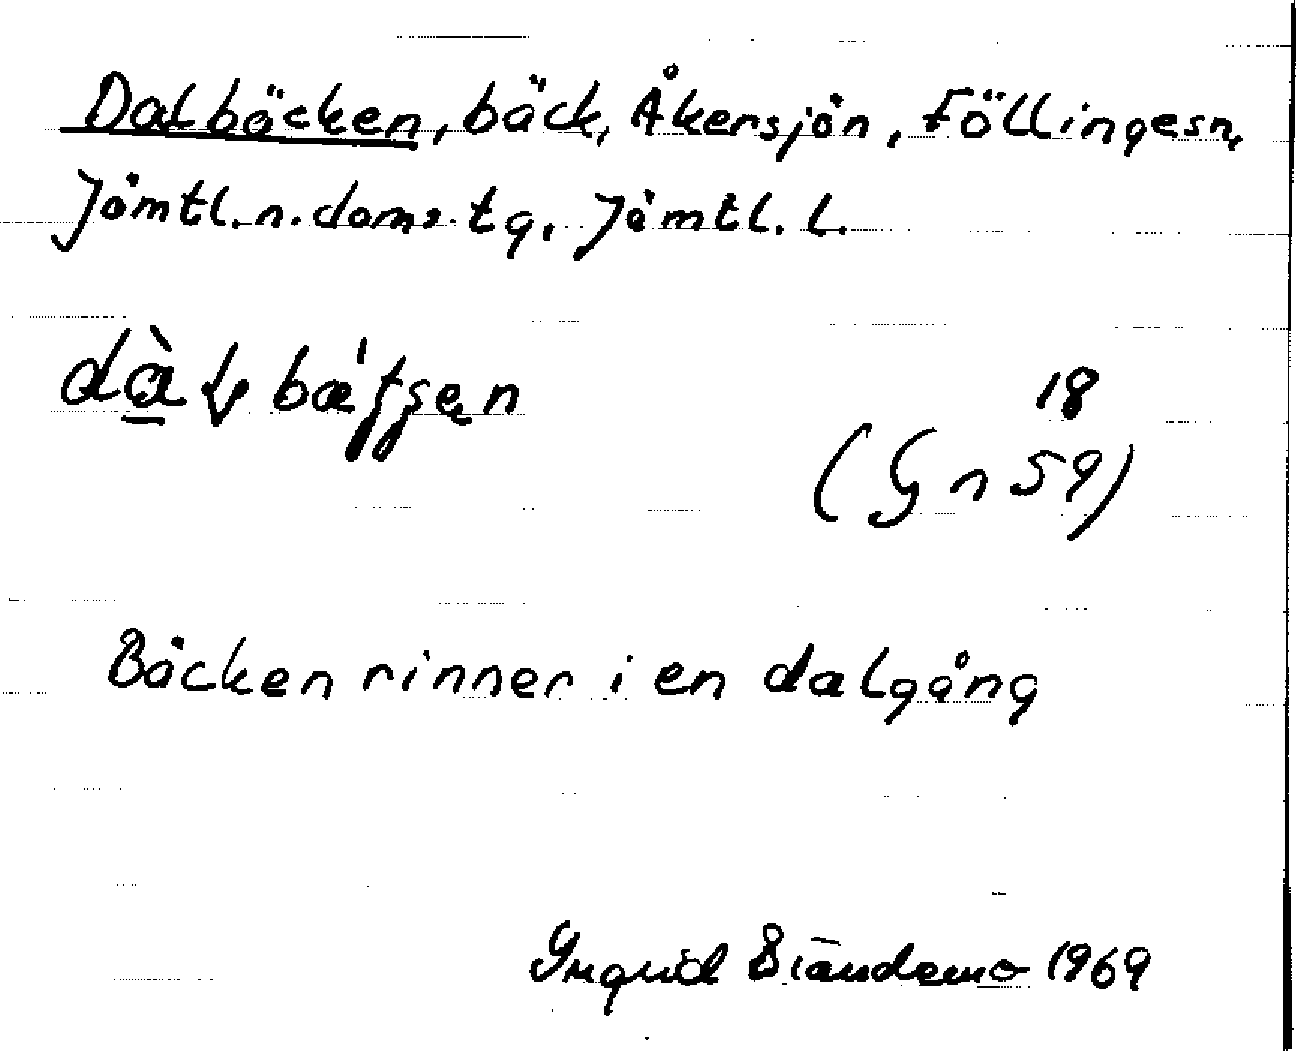 Dalbäcken, bäck, Åkersjön, Föllingesn,
Jämtl. n. doms. tg, Jämtl. l.
18
(Gn 59)
Bäcken rinner i en dalgång
Ingrid 1969